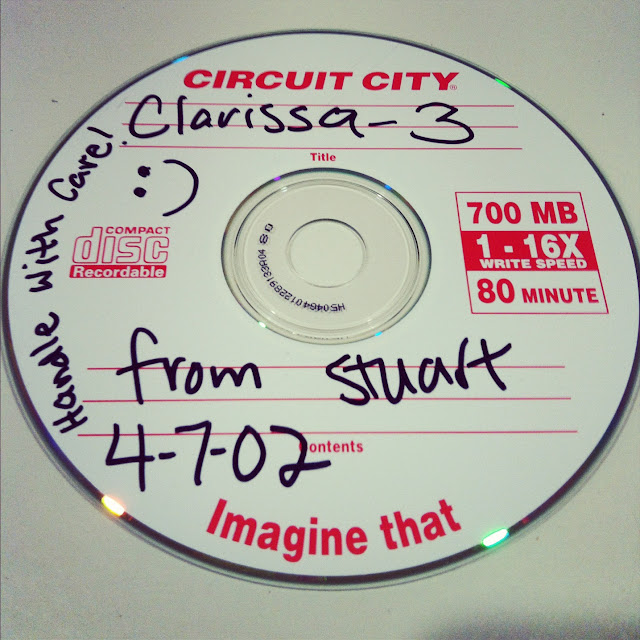 CIRCUIT CITY®
Clarissa-3
Title
Handle With Care!
:)
COMPACT
disc
Recordable
700 MB
1 - 16X
WRITE SPEED
80 MINUTE
from Stuart
4-7-02
Contents
Imagine that